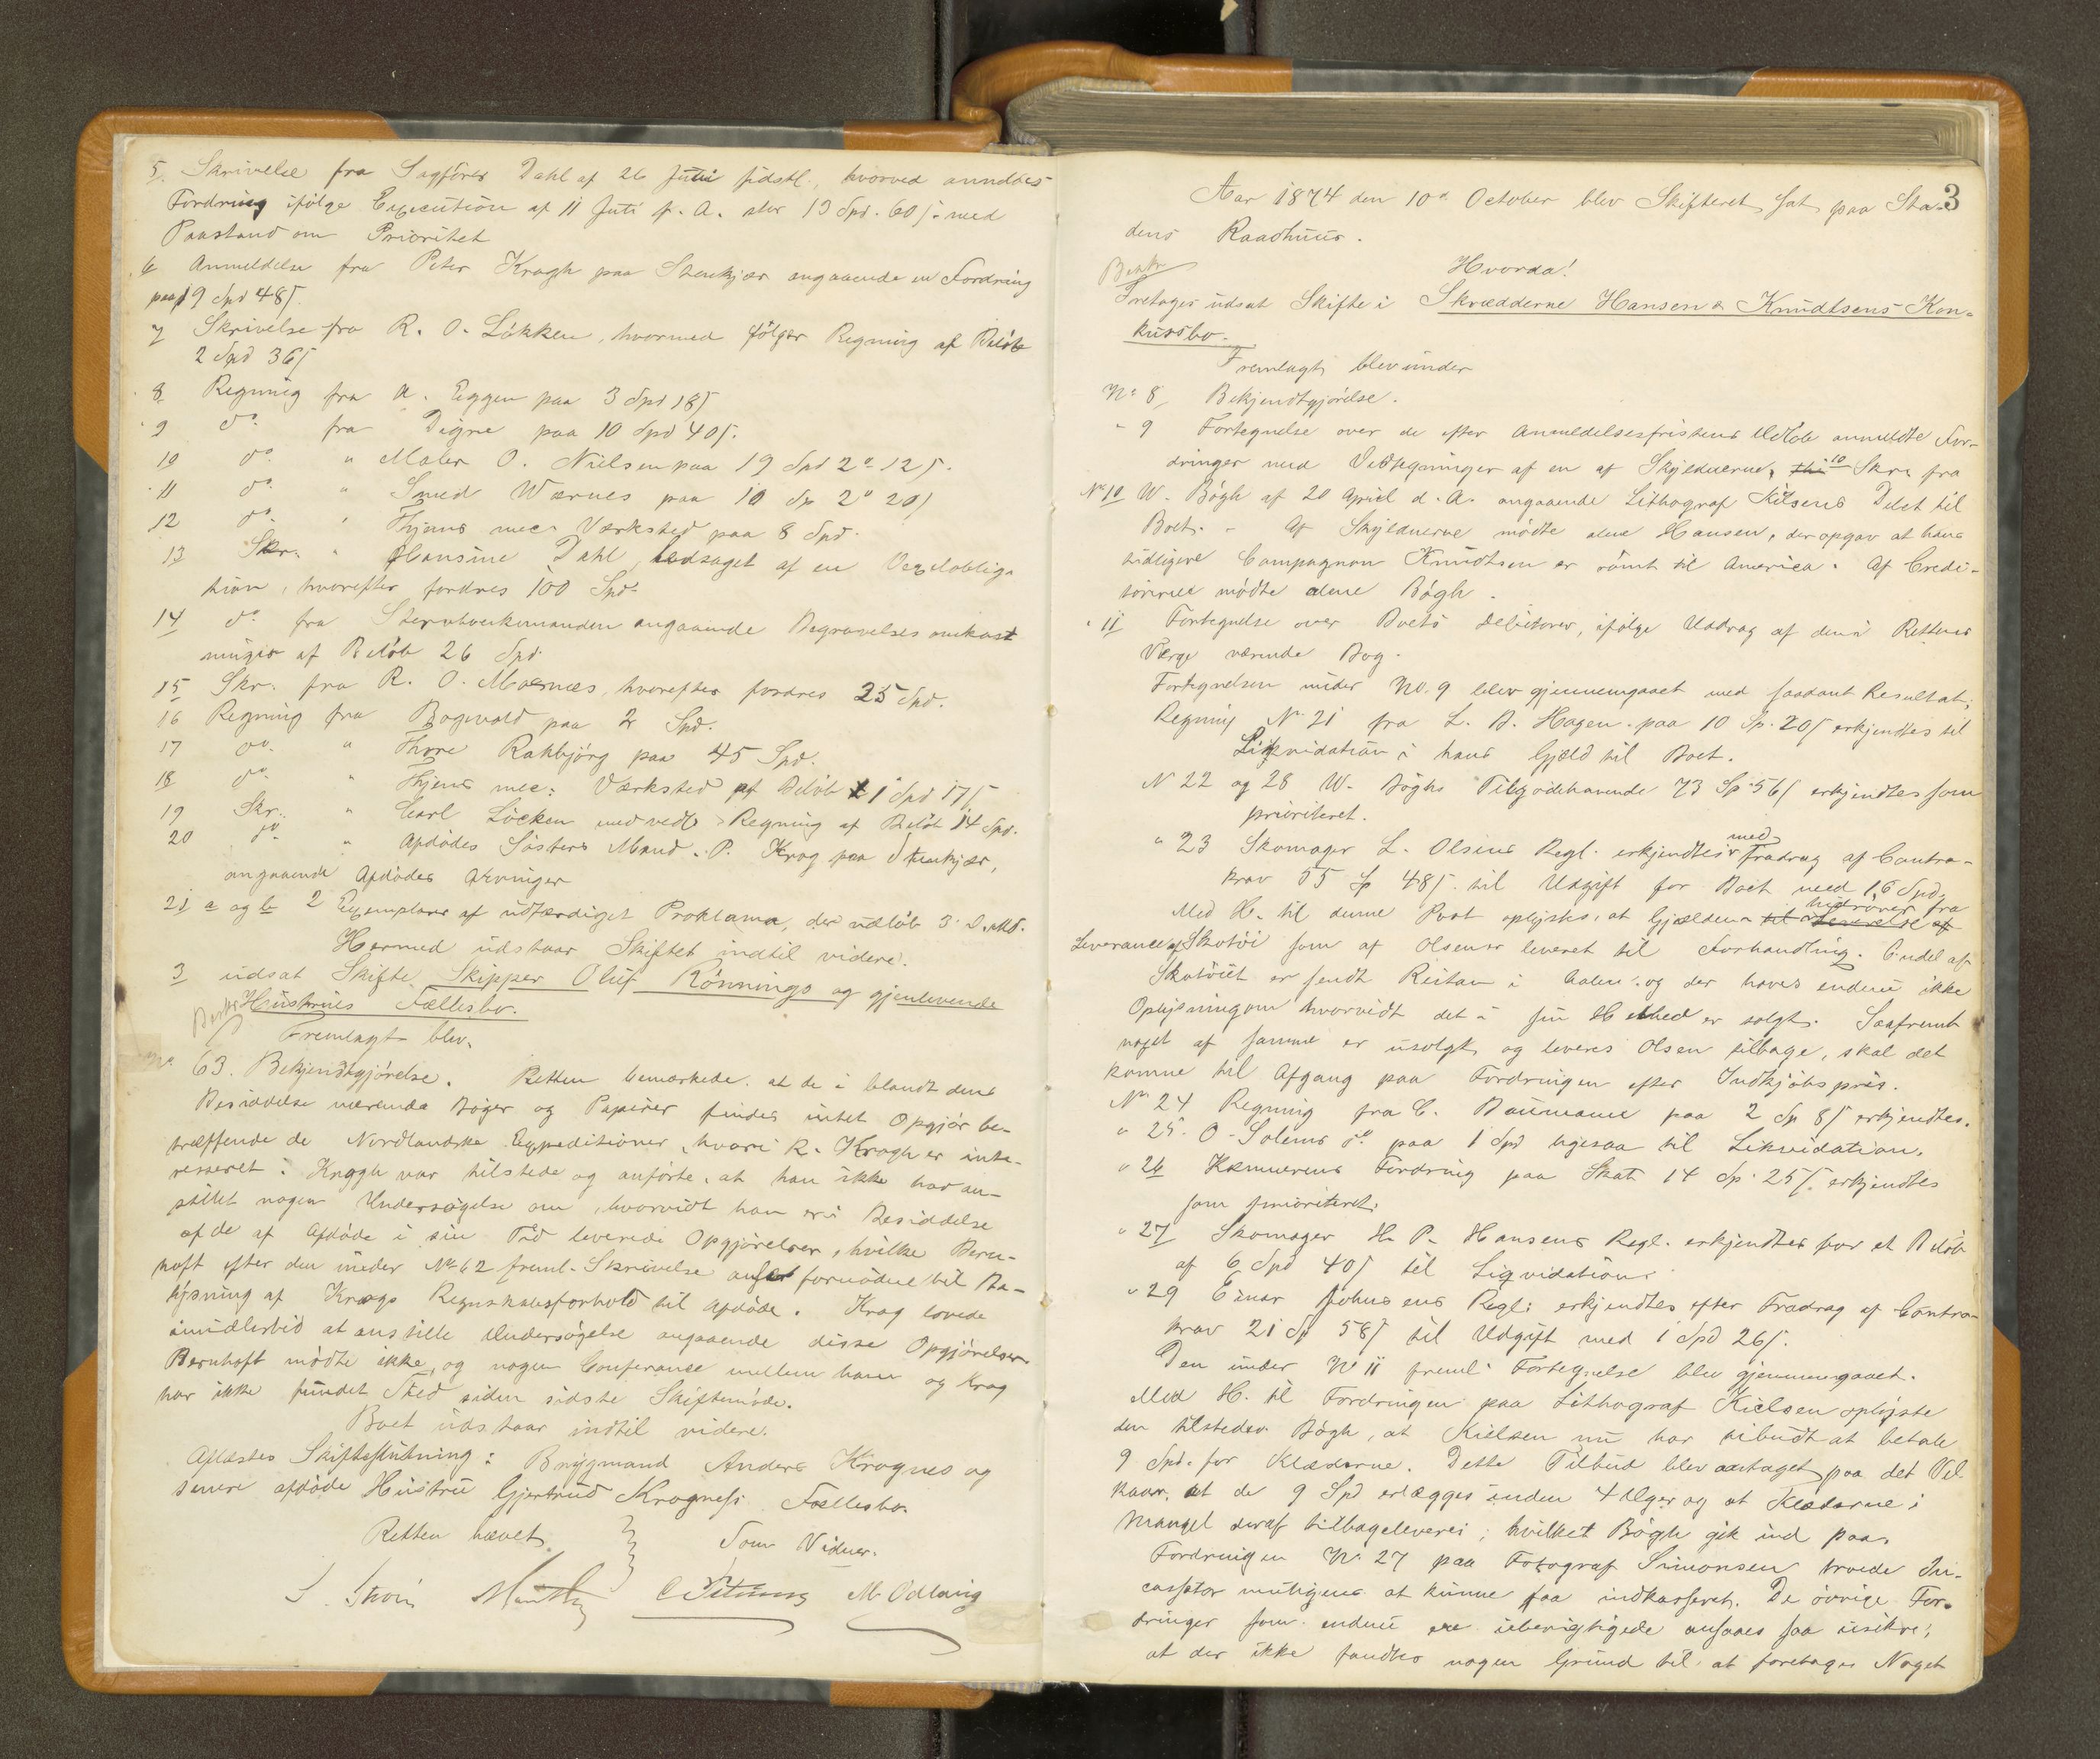 5. Skrivelse fra Sagfører Dahl af 26 Juni sidstl., hvorved anmeldes
Fordring ifølge Execution af 11 Juli f. A. stor 13 Spd. 60 s. med
Paastand om Prioritet
6 Anmeldelse fra Peter Krogh paa Stenkjær angaaende en Fordring
paa 19 Spd 48 s.
7 Skrivelse fra R. O. Løkken, hvormed følger Regning af Beløb
2 Spd 36 s
8 Regning fra A. Eggen paa 3 Spd 18 s
9 do. fra Digre paa 10 Spd 40 s.
10 do. " Maler O. Nielsen paa 19 Spd 2o 12 s.
11 do. " Smed Wærnes paa 10 Sp 2o 20 s
12 do. " Thjems mec. Værksted paa 8 Spd.
13 Skr. " Hansine Dahl, ledsaget af en Vexelobliga
tion, hvorefter fordres 100 Spd.
14 do. fra angaaende Begravelses omkost
ninger af Beløb 26 Spd.
15 Skr. fra R. O. Moernæs, hvorefter fordres 25 Spd.
16 Regning fra Bogwald paa 2 Spd.
17 do. " Thore Rakbjørg paa 45 Spd.
18 do. " Thjems mec: Værksted af Beløb 1 Spd 17 s.
19 Skr. " Carl Löcken med vedl. Regning af Beløb 14 Spd.
20 do. " Afdødes Søsters Mand. P. Krog paa Stenkjær,
angaaende Afdødes Arvinger
21 a og b 2 Exemplarer af udfærdiget Proklama, der udløb 3 D. Md.
Hermed udstaar Skiftet indtil videre.
3 udsat Skifte Skipper Oluf Rönnings og gjenlevende
Bestr Hustrues Fællesbo.
Fremlagt blev.
No. 63. Bekjendtgjørelse. Retten bemærkede at de i blandt dens
Besiddelse værende Bøger og Papirer findes intet Opgjør be-
træffende de Nordlandske Expeditioner, hvori R. Krogh er inte-
resseret. Krogh var tilstede og anførte, at han ikke har an-
stillet nogen Undersøgelse om, hvorvidt han er i Besiddelse
af de af Afdøde i sin Tid leverede Opgjørelser, hvilke Bern-
hoft efter den under No 62 freml. Skrivelse anser fornødne til Be-
lysning af Krogs Regnskabsforhold til Afdøde. Krog lovede
imidlertid at anstille Undersøgelse angaaende disse Opgjørelser.
Bernhoft mødte ikke, og nogen Conferance mellem ham og Krog
har ikke fundet Sted siden sidste Skiftemøde.
Boet udstaar indtil videre.
Aflæstes Skifteslutning: Brygmand Anders Krognes og
senere afdøde Hustru Gjertrud Krogness Fællesbo.
Retten hævet. Som Vidner.
M. Ødlaug
3
Aar 1874 den 10de October blev Skifteret sat paa Sta-
dens Raadhuus.
Hvorda!
Bestr
Foretages udsat Skifte i Skrædderne Hansen & Knudtsens Kon-
kursbo.
Fremlagt blev under
No 8 Bekjendtgjørelse.
" 9 Fortegnelse over de efter Anmeldelsesfristens Udløb anmeldte For-
dringer med Vedtegninger af en af Skyldnerne, 10 Skr. fra
No 10 W. Bøgh af 20 April d. A. angaaende Lithograf Kilsens Debet til
Boet. - Af Skyldnerne mødte alene Hansen, der opgav at hans
tidligere Compagnon Knudtsen er rømt til America. Af Credi-
torerne mødte alene Bøgh.
" 11 Fortegnelse over Boets Debitorer, ifølge Uddrag af den i Rettens
Værge værende Bog.
Fortegnelsen under No. 9 blev gjennemgaaet med saadant Resultat;
Regning No 21 fra L. B. Hagen paa 10 Sp. 20 s erkjendtes til
Likvidation i hans Gjæld til Boet.
N 22 og 28 W. Bøghs Tilgodehavende 73 Sp 56 s erkjendtes som
prioriteret.
" 23 Skomager L. Olsens Regl. erkjendtes med Fradrag af Contra-
krav 55 Sp 48 s. til Udgift for Boet med 16 Spd.
Med H. til denne Post oplystes, at Gjælden hidrører fra
Leverance af Skotøi som af Olsen er leveret til Forhandling. Endel af
Skotøiet er sendt Reitan i Aalen og der haves endnu ikke
Oplysning om hvorvidt det i sin Helhed er solgt. Saafremt
noget af samme er usolgt og leveres Olsen tilbage, skal det
komme til Afgang paa Fordringen efter Indkjøbspris.
No 24 Regning fra C. Baumann paa 2 Sp 8 s erkjendtes.
" 25. O. Solems do paa 1 Spd ligesaa til Likvidation.
" 26 Kæmnerens Fordring paa Skat 14 Sp. 25 s. erkjendtes
som prioriteret.
" 27 Skomager H. P. Hansens Regl. erkjendtes for et Beløb
af 6 Spd 40 s til Liqvidation.
" 29 Einar Johnsens Regl: erkjendtes efter Fradrag af Contra-
krav 21 Sp 58 s til Udgift med 1 Spd 26 s.
Den under No 11 freml. Fortegnelse blev gjennemgaaet.
Med H. til Fordringen paa Lithograf Kielsen oplyste
den tilstedev. Bøgh, at Kielsen nu har tilbudt at betale
9 Spd. for Klæderne. Dette Tilbud blev antaget paa det Vil
kaar, at de 9 Spd erlægges inden 4 Uger og at Klæderne i
Mangel deraf tilbageleveres; hvilket Bøgh gik ind paa.
Fordringen No. 27 paa Fotograf Simonsen troede In-
cassator muligens at kunne faa indkasseret. De øvrige For-
dringer som endnu ere uberigtigede ansaaes saa usikre,
at der ikke fandtes nogen Grund til at foretages Noget